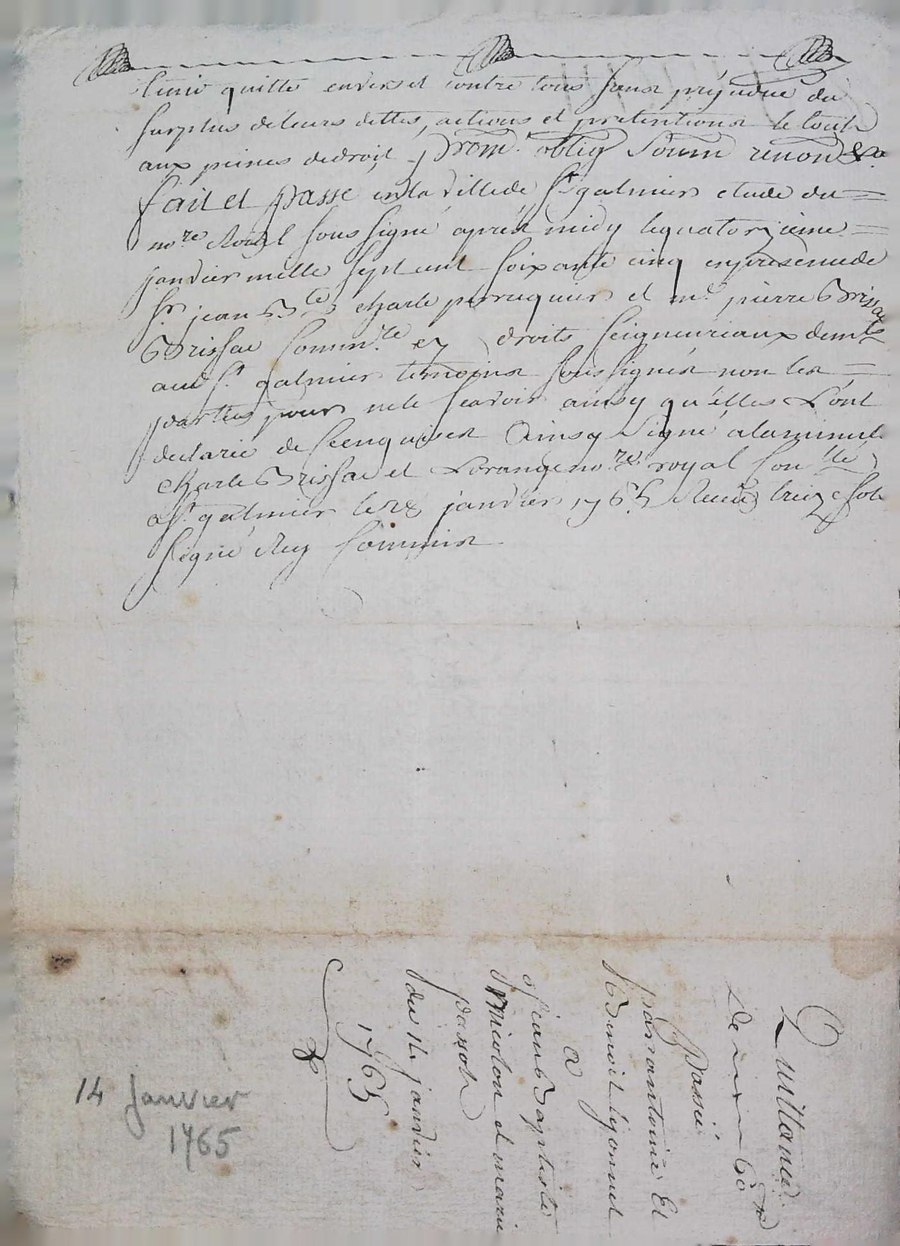 tenir quitte envers et contre tous sans préjudice du
surplus de leurs dettes, actions et pretentions le tout
aux peines de droit prom. oblig soum renon &a
fait et passé en la ville de St galmier etude du
nore Royal soussigné après midy le quatorzieme
janvier mille sept cent soixante cinq en presence de
sr jean Bte charle perruquier et me pierre Brissac
Brissac Commre ez droits seigneuriaux demts
aud St galmier temoins soussignés non les
parties pour ne le scavoir ainsy qu'elles l'ont
declaré de ce enquises Ainsy signé a la minute
charle Brissac et Lorange nore royal con lle
a St galmier le 28 janvier 1765 Recu treize sols
signé Rey commis
Quittance
De 60 #
Passée
par antoine Et
Benoit lyonnet
a
jean Baptiste
Micolon et marie
passot
du 14 janvier
1765
14 Janvier
1765